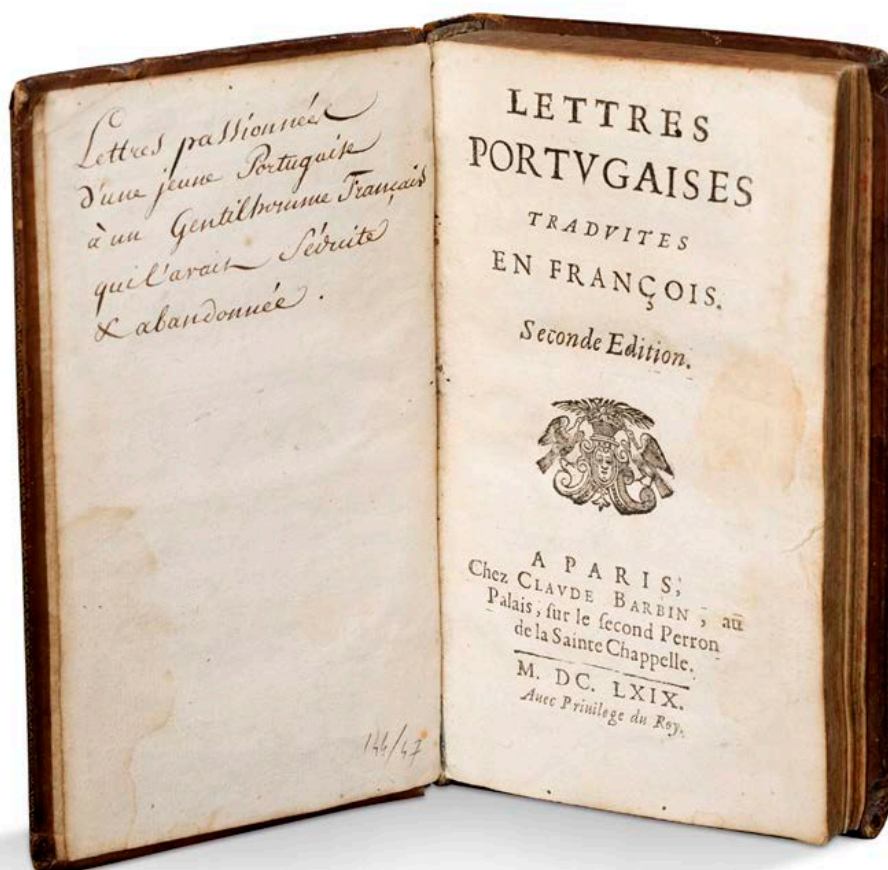 Lettres passionnées
d'une jeune Portugaise
à un Gentilhomme Français
qui l'avait Séduite
& abandonnée.
144/47
LETTRES
PORTVGAISES
TRADVITES
EN FRANÇOIS.
Seconde Edition.
A PARIS,
Chez CLAVDE BARBIN, au
Palais, ſur le ſecond Perron
de la Sainte Chappelle.
M. DC. LXIX.
Auec Priuilege du Roy.